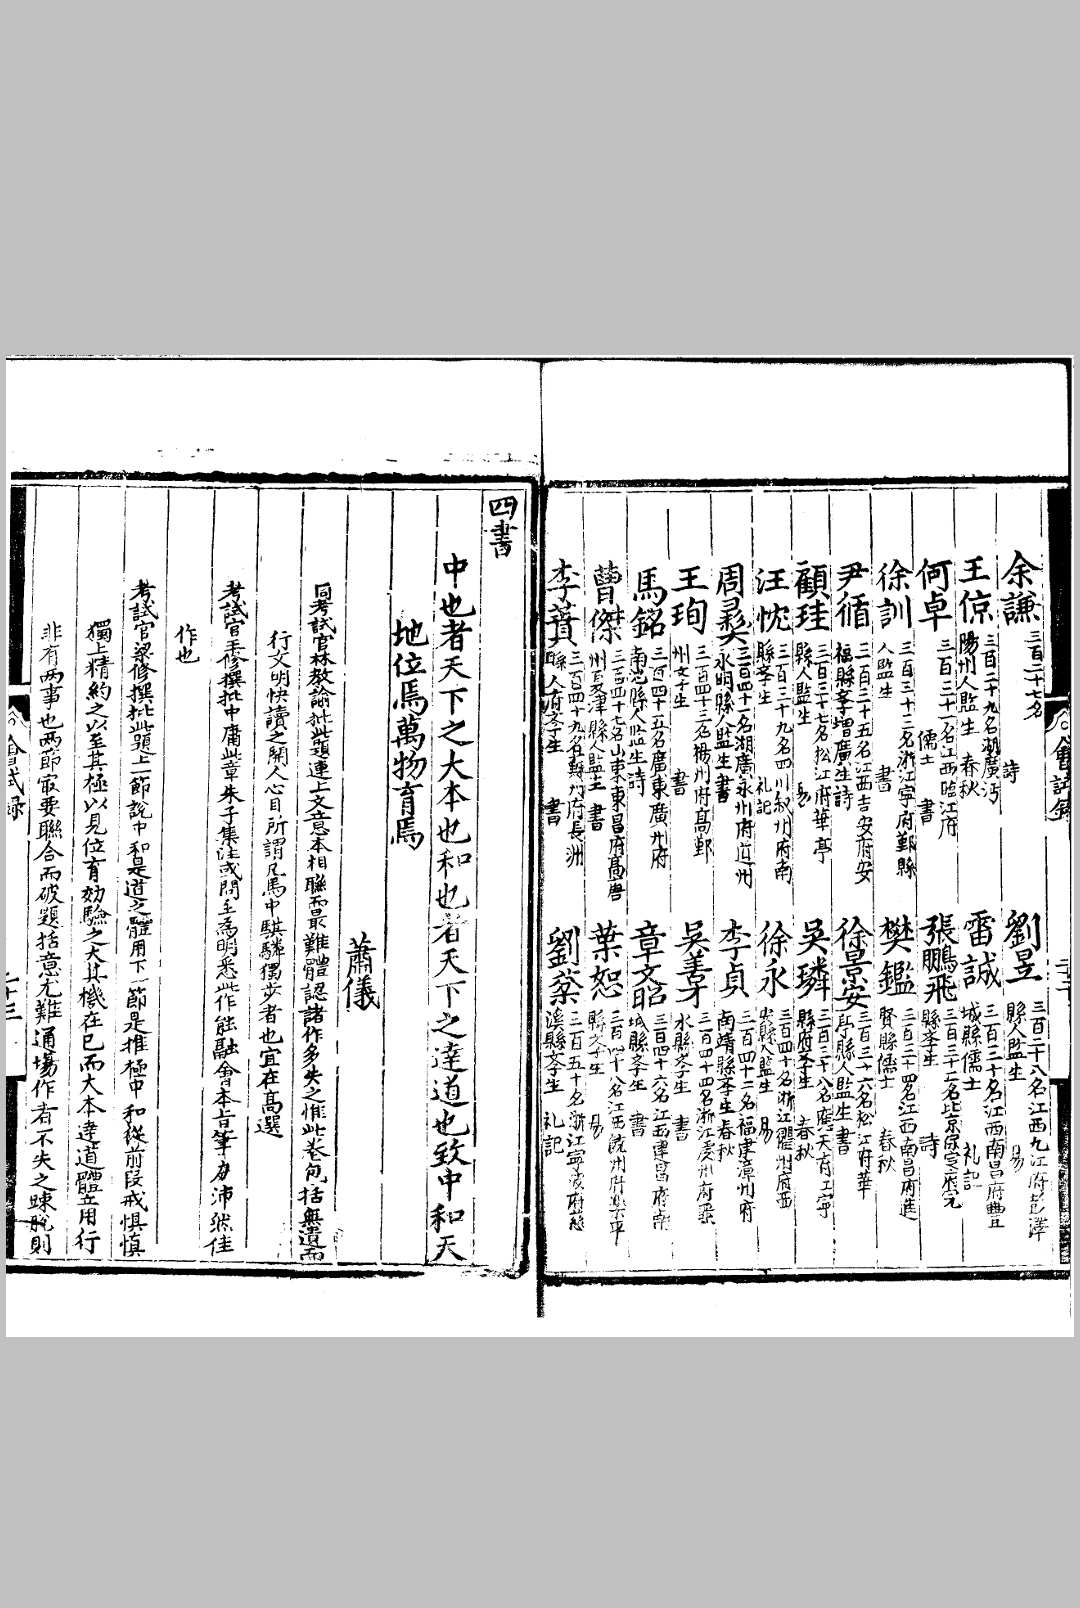 會試錄
二十二
余謙 三百二十七名 詩
劉昱 三百二十八名江西九江府彭澤縣人監生 易
王倞 三百二十九名湖廣沔陽州人監生 春秋
雷誠 三百三十名江西南昌府豐城縣儒士 礼記
何卓 三百三十一名江西臨江府儒士 書
張鵬飛 三百三十二名北京保定府完縣孝生 詩
徐訓 三百三十三名浙江寧府鄞縣人監生 書
樊鑑 三百三十四名江西南昌府進賢縣儒士 春秋
尹循 三百三十五名江西吉安府安福縣孝增廣生詩
徐景安 三百三十六名松江府華亭縣人監生書
顧珪 三百三十七名松江府華亭縣人監生 易
吳璘 三百三十八名應天府江寧縣府孝生 春秋
汪忱 三百三十九名四川敘州府南縣孝生 礼記
徐永 三百四十名浙江衢州府西安縣人監生 易
周彛 三百四十一名湖廣永州府道州永明縣人監生書
李貞 三百四十二名福建漳州府南靖縣孝生春秋
王珣 三百四十三名楊州府高郵州孝生 書
吳善才 三百四十四名浙江處州府麗水縣孝生 書
馬銘 三百四十五名廣東廣州府南海縣人監生詩
章文昭 三百四十六名江西建昌府南城縣孝生 書
曹傑 三百四十七名山東東昌府高唐州夏津縣人監生 書
葉恕 三百四十八名江西饒州府樂平縣孝生 易
李蕡 三百四十九名蘇州府長洲縣人府孝生 書
劉棻 三百五十名浙江寧波府慈溪縣孝生 礼記
四書
中也者天下之大本也和也者天下之達道也致中和天
地位焉萬物育焉
蕭儀
同考試官林教諭批此題連上文意本相聯而最難體認諸作多失之惟此卷包括無遺而
行文明快讀之開人心目所謂凡馬中騏驎獨步者也宜在高選
考試官王修撰批中庸此章朱子集注或問至為明悉此作能融會本旨筆力沛然佳
作也
考試官梁修撰批此題上一節說中和是道之體用下一節是推極中和從前段戒慎慎
獨上精約之以至其極以見位育効驗之大其機在已而大本達道體立用行
非有两事也两節㝡要聯合而破題括意尤難通場作者不失之踈脫則
會試錄
二十三